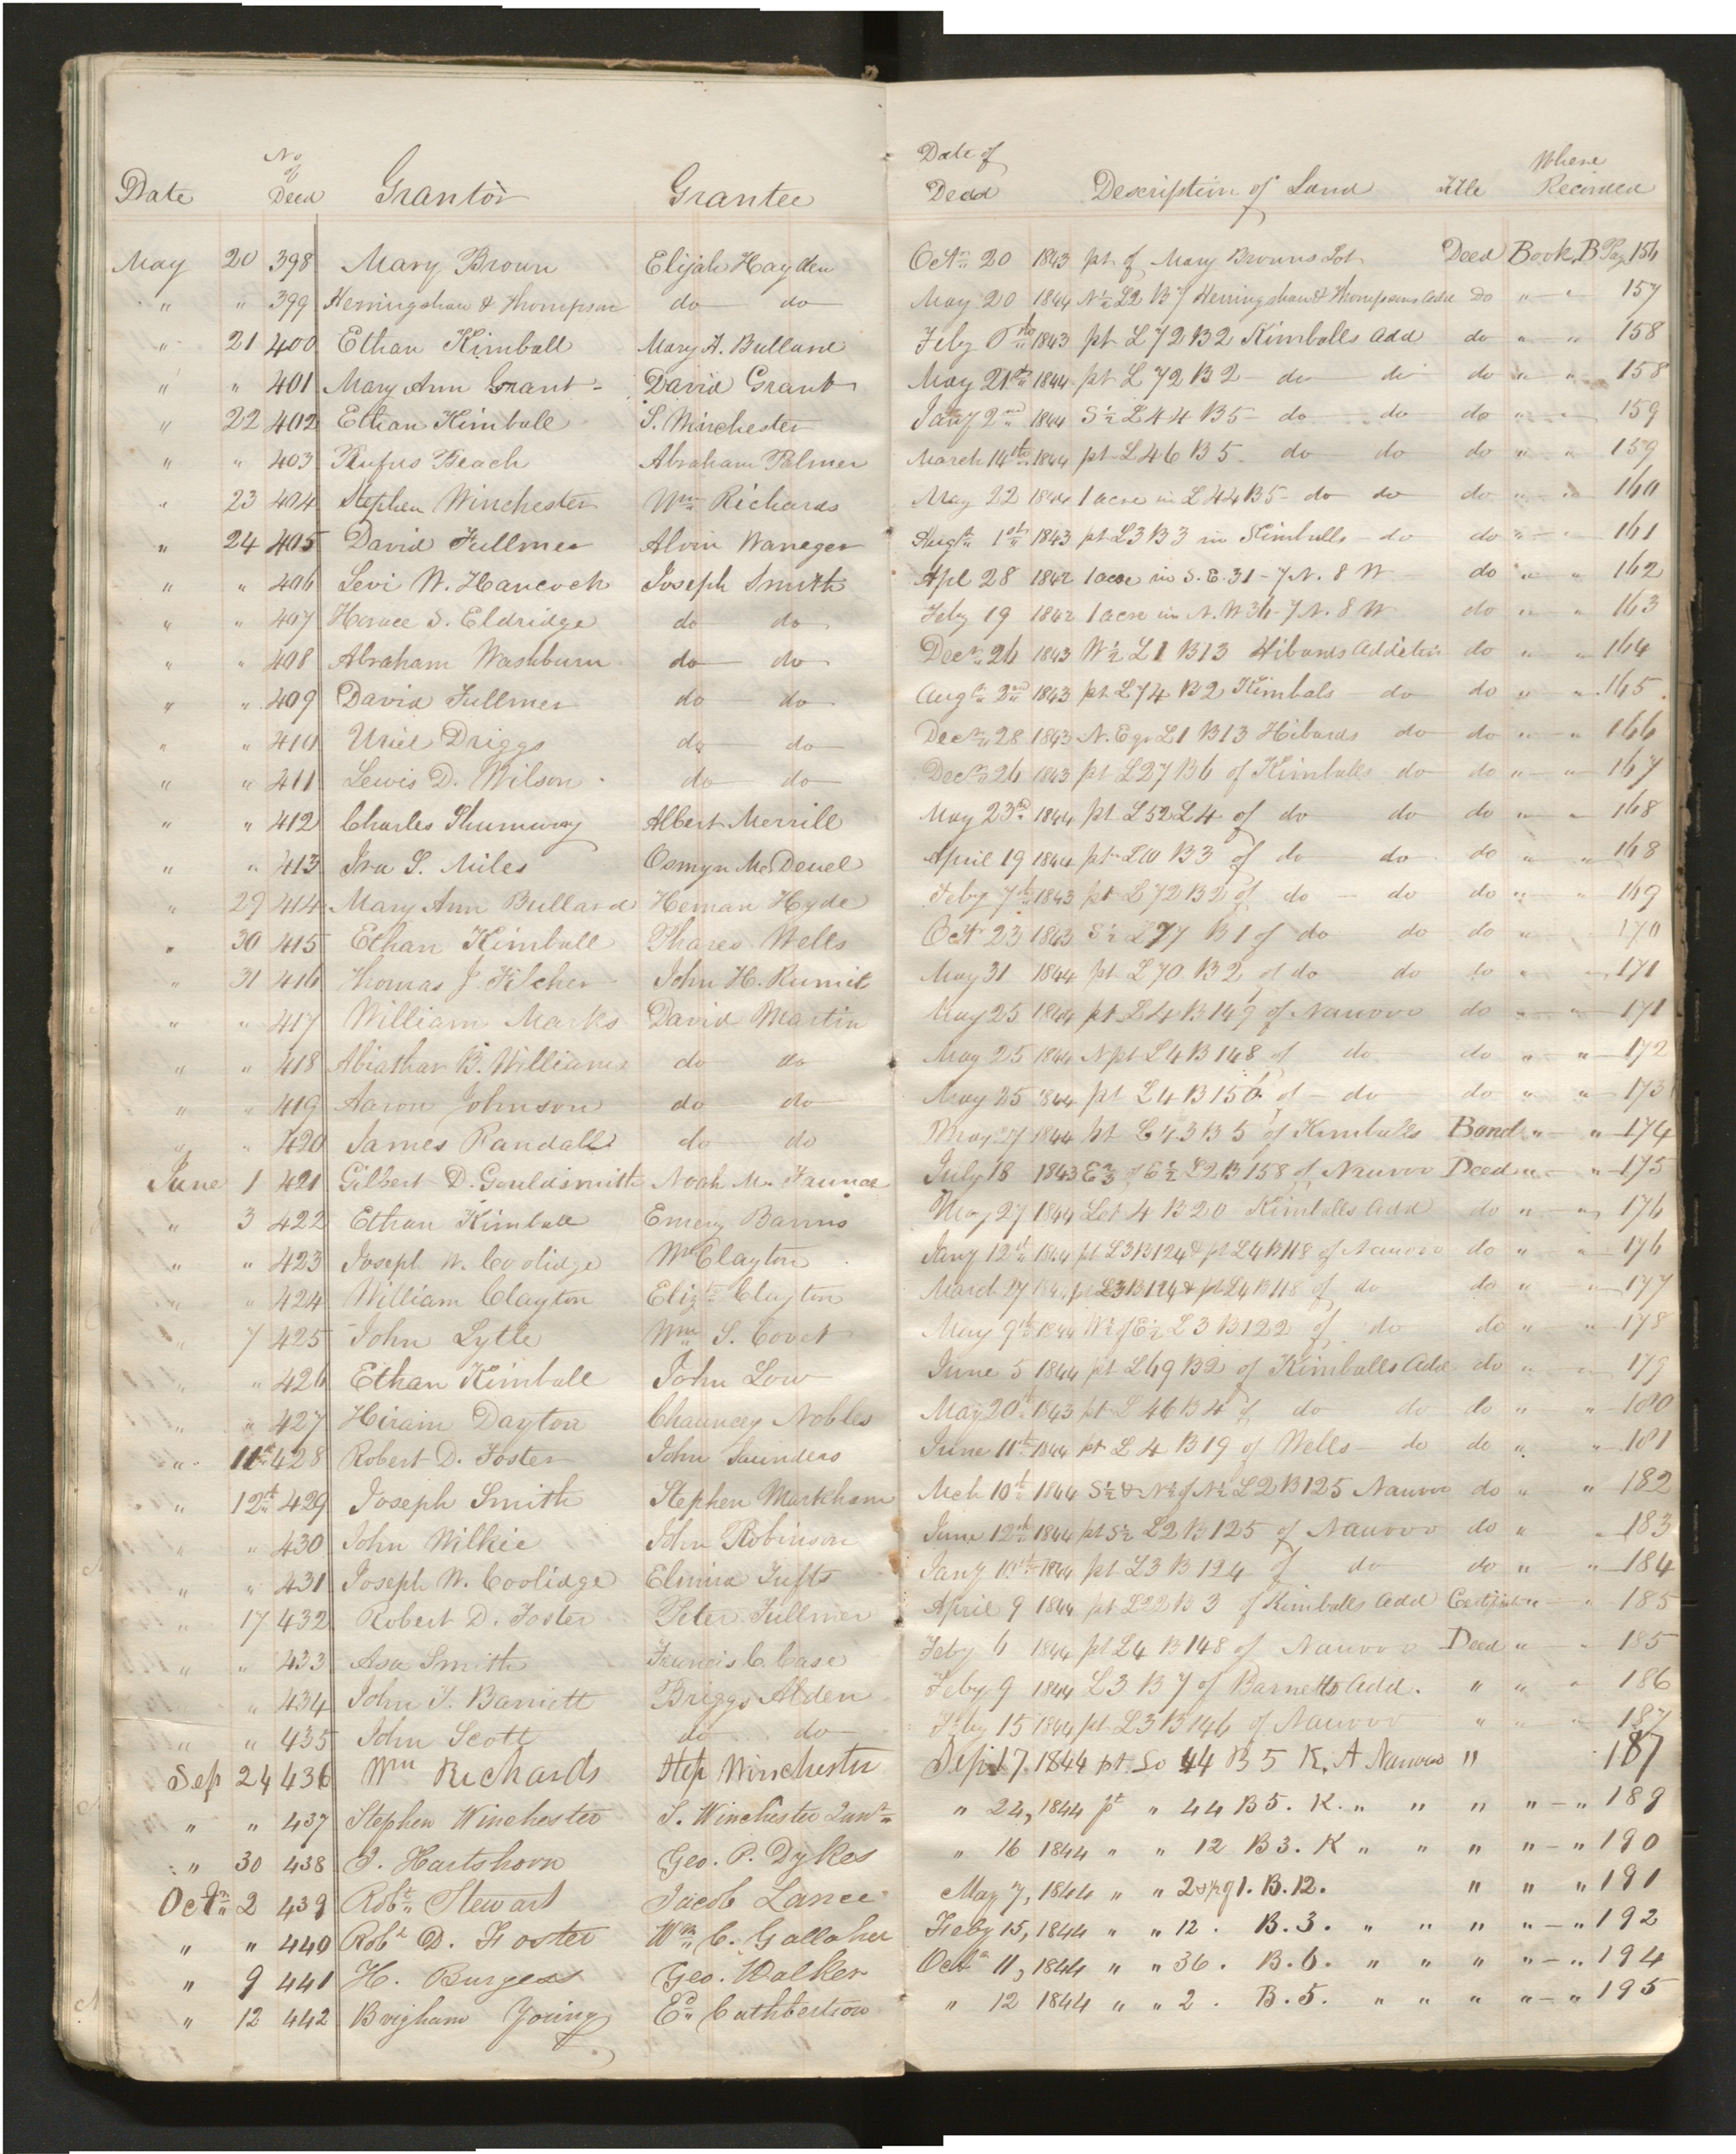 Date No of Deed Grantor Grantee Date of Deed Description of Land Title Where Recorded
May 20 398 Mary Brown Elijah Hayden Octr 20 1843 pt of Mary Browns Lot Deed Book B Pag 156
" " 399 Herringshaw & Thompson do do May 20 1844 N½ L2 B7 Herringshaw & Thompsons Add Do " " 157
" 21 400 Ethan Kimball Mary A. Bullard Feby 1843 pt L 72 B2 Kimballs Add do " " 158
" " 401 Mary Ann Grant David Grant May 21st 1844 pt L 72 B2 do do do " " 158
" 22 402 Ethan Kimball S. Winchester Jany 2nd 1844 S½ L44 B5 do do do " " 159
" " 403 Rufus Beach Abraham Palmer March 14th 1844 pt L46 B5 do do do " " 159
" 23 404 Stephen Winchester Wm Richards May 22 1844 1 acre in L44 B5 do do do " " 160
" 24 405 David Fullmer Alvin Waneger Augt 1st 1843 pt L3 B3 in Kimballs do do " " 161
" " 406 Levi W. Hancock Joseph Smith Apl 28 1842 1 acre in S.E. 31-7N. 8W do " " 162
" " 407 Horace S. Eldridge do do Feby 19 1842 1 acre in N.W 36-7N. 8W do " " 163
" " 408 Abraham Washburn do do Decr 26 1843 W½ L1 B13 Hibards Addition do " " 164
" " 409 David Fullmer do do Augt 2nd 1843 pt L74 B2 Kimbals do do " " 165
" " 410 Uriel Driggs do do Decr 28 1843 N.E qr L1 B13 Hibards do do " " 166
" " 411 Lewis D. Wilson do do Decr 26 1843 pt L27 B6 of Kimballs do do " " 167
" " 412 Charles Shumway Albert Merrill May 23d 1844 pt L52 L4 of do do do " " 168
" " 413 Ira S. Miles Osmyn M. Deuel April 19 1844 pt L10 B3 of do do do " " 168
" 29 414 Mary Ann Bullard Heman Hyde Feby 7th 1843 pt L72 B2 of do do do " " 169
" 30 415 Ethan Kimball Phares Wells Octr 23 1843 S½ L77 B1 of do do do " 170
" 31 416 Thomas J. Filcher John H. Rumil May 31 1844 pt L70 B2 of do do do " 171
" " 417 William Marks David Martin May 25 1844 pt L4 B149 of Nauvoo do " " 171
" " 418 Abiathar B. Williams do do May 25 1844 N pt L4 B148 of do do " " 172
" " 419 Aaron Johnson do do May 25 1844 pt L4 B150 of do do " " 173
" " 420 James Randall do do May 27 1844 pt L43 B5 of Kimballs Bond " " 174
June 1 421 Gilbert D. Gouldsmith Noah M. Faunce July 18 1843 E⅔ of E½ L2 B158 of Nauvoo Deed " " 175
" 3 422 Ethan Kimball Emery Barrus May 27 1844 Lot 4 B20 Kimballs Add do " " 176
" " 423 Joseph W. Coolidge Wm Clayton Jany 12th 1844 pt L3 B124 & pt L4 B118 of Nauvoo do " " 176
" " 424 William Clayton Elizth Clayton March 27 1844 pt L3 B124 & pt L4 B118 of do do " " 177
" 7 425 John Lytle Wm S. Covert May 9th 1844 W½ of E½ L3 B122 of do do " " 178
" " 426 Ethan Kimball John Low June 5 1844 pt L69 B2 of Kimballs Add do " " 179
" " 427 Hiram Dayton Chauncey Nobles May 20th 1843 pt L46 B4 of do do do " " 180
" 11th 428 Robert D. Foster John Saunders June 11th 1844 pt L4 B19 of Wells do do " " 181
" 12th 429 Joseph Smith Stephen Markham Mch 10th 1844 S½ & N½ of N½ L2 B125 Nauvoo do " " 182
" " 430 John Wilkie John Robinson June 12th 1844 pt S½ L2 B125 of Nauvoo do " " 183
" " 431 Joseph W. Coolidge Elmira Tufts Jany 10th 1844 pt L3 B124 of do do " " 184
" 17 432 Robert D. Foster Peter Fullmer April 9 1844 pt L22 B3 of Kimballs Add Certificate " " 185
" " 433 Asa Smith Francis C. Case Feby 6 1844 pt L4 B148 of Nauvoo Deed " " 185
" 434 John T. Barnett Briggs Alden Feby 9 1844 L3 B7 of Barnetts Add. " " " 186
" " 435 John Scott do do Feby 15 1844 pt L3 B146 of Nauvoo " " " 187
Sep 24 436 Wm Richards Step Winchester Sep 17 1844 pt Lo 44 B5 K. A Nauvoo " 187
" " 437 Stephen Winchester S. Winchester Junr " 22, 1844 pt " 44 B5. K. " " " " " 189
" 30 438 J. Hartshorn Geo. P. Dykes " 16 1844 " " 12 B3. K " " " " " 190
Octr 2 439 Robt Stewart Jacob Lance May 7, 1844 " " B.12. " " " 191
" " 440 Robt D. Foster Wm C. Gallaher Feby 15, 1844 " " 12. B.3. " " " " " 192
" 9 441 H. Burgess Geo. Walker Octr 11, 1844 " " 36. B.6. " " " " " 194
" 12 442 Brigham Young Ed Cuthbertson " 12 1844 " " 2. B.5. " " " " " 195